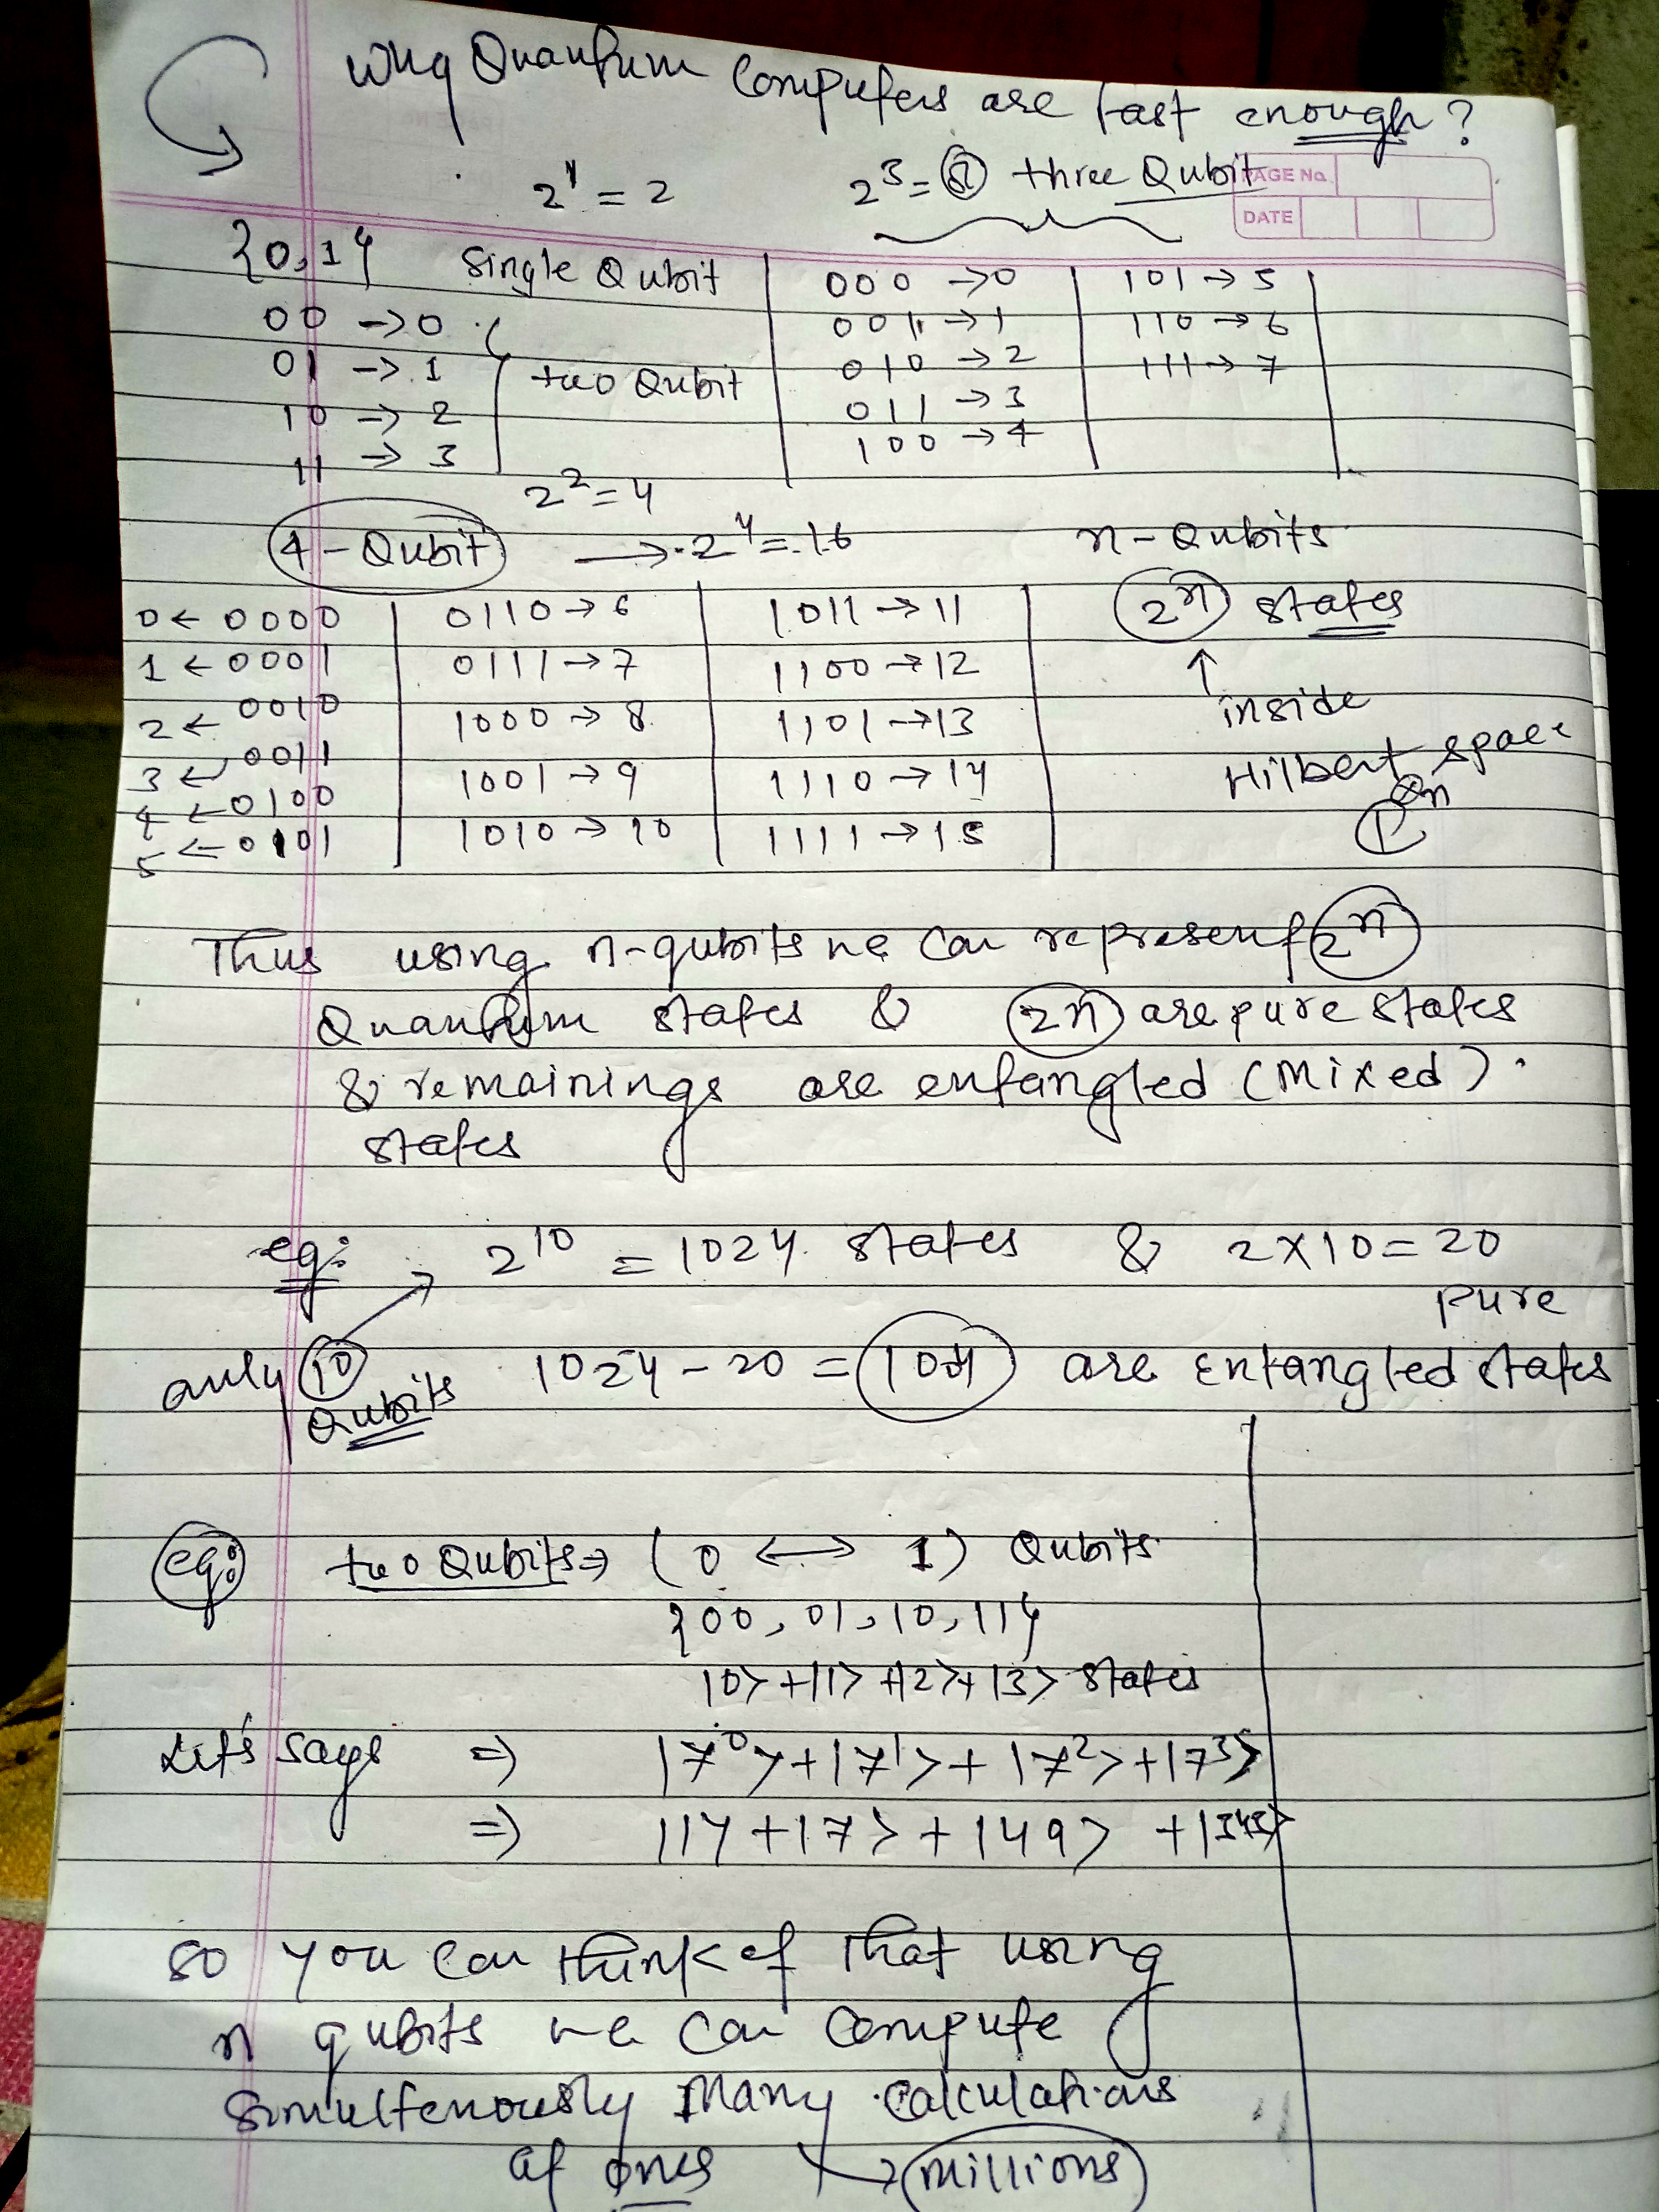 Why Quantum Computers are fast enough?
2^1 = 2
2^3 = 8 three Qubit
PAGE No.
DATE
{0,1} Single Qubit
00 → 0
01 → 1
10 → 2
11 → 3
two Qubit
2^2 = 4
000 → 0
001 → 1
010 → 2
011 → 3
100 → 4
101 → 5
110 → 6
111 → 7
4-Qubit → 2^4 = 16
0 ← 0000
1 ← 0001
2 ← 0010
3 ← 0011
4 ← 0100
5 ← 0101
0110 → 6
0111 → 7
1000 → 8
1001 → 9
1010 → 10
1011 → 11
1100 → 12
1101 → 13
1110 → 14
1111 → 15
n-Qubits
2^n states
↑
inside
Hilbert space
⊗n
Thus using n-qubits we can represent 2^n
Quantum states & 2n are pure states
& remainings are entangled (Mixed)
states
eg: 2^10 = 1024 states & 2×10 = 20
pure
only 10
Qubits
1024 - 20 = 1004 are Entangled states
eg: two Qubits ⇒ (0 ↔ 1) Qubits
{00, 01, 10, 11}
|0> + |1> + |2> + |3> states
Let's says ⇒ |7^0> + |7^1> + |7^2> + |7^3>
⇒ |1> + |7> + |49> + |343>
so you can think of that using
n qubits we can compute
simultenously Many calculations
at ones → millions